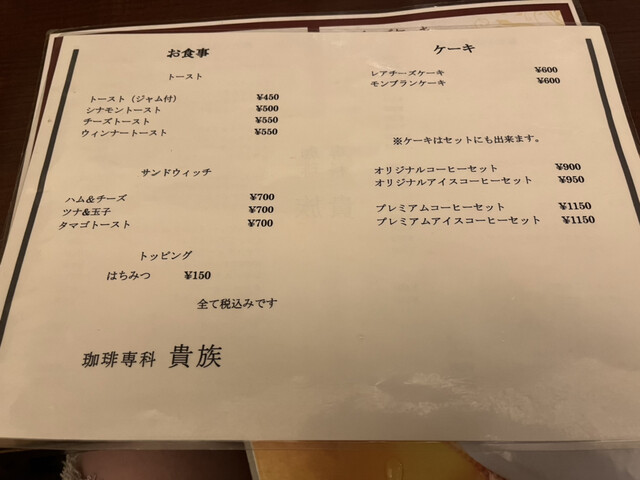 お食事
トースト
トースト（ジャム付） ¥450
シナモントースト ¥500
チーズトースト ¥550
ウィンナートースト ¥550
サンドウィッチ
ハム&チーズ ¥700
ツナ&玉子 ¥700
タマゴトースト ¥700
トッピング
はちみつ ¥150
全て税込みです
珈琲専科 貴族
ケーキ
レアチーズケーキ ¥600
モンブランケーキ ¥600
※ケーキはセットにも出来ます。
オリジナルコーヒーセット ¥900
オリジナルアイスコーヒーセット ¥950
プレミアムコーヒーセット ¥1150
プレミアムアイスコーヒーセット ¥1150